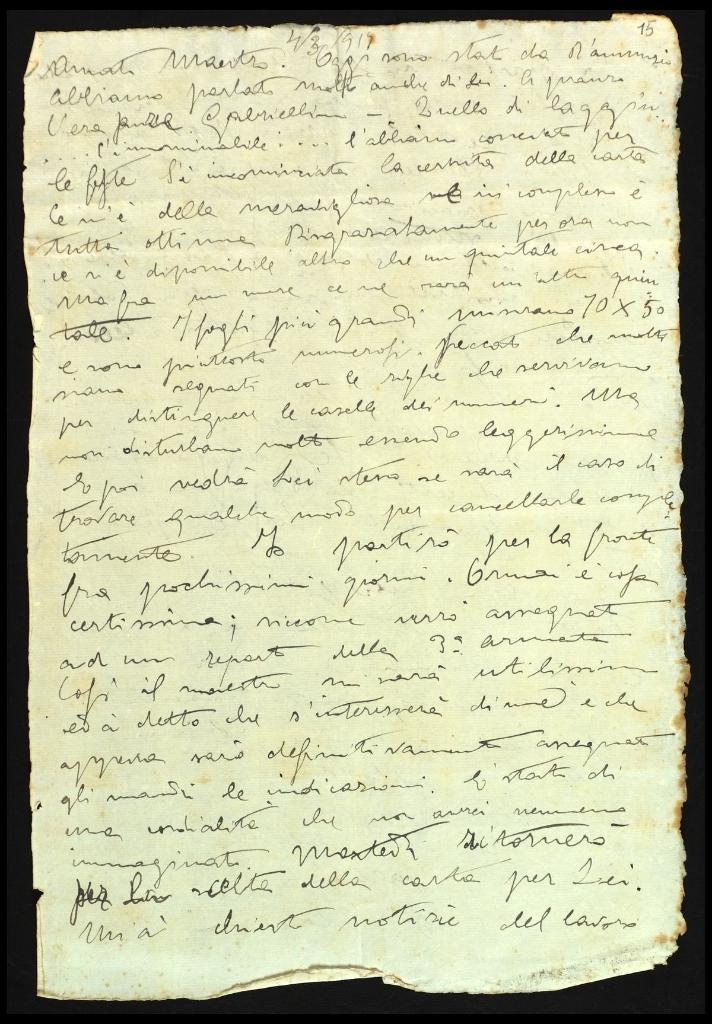 15
4/3/917
Amato Maestro. Oggi sono stato da D'annunzio
abbiamo parlato molto anche di Lei. A pranzo
Vera Gabriellina — Quello di laggiù
.... l'innominabile .... l'abbiamo conciato per
le feste Si incominciata la cernita della carta
Ce n'è della meravigliosa in complesso è
tutta ottima Disgraziatamente per ora non
ce n'è disponibile altro che un quintale circa.
Ma fra un mese ce ne sarà un'altro quin
tale. I fogli più grandi misurano 70 X 50
e sono piuttosto numerosi. Peccato che molti
siano segnati con le righe che servivano
per distinguere le caselle dei numeri. Ma
non disturbano molto essendo leggerissime
E poi vedrà Lei stesso se sarà il caso di
trovare qualche modo per cancellarle comple
tamente. Io partirò per la fronte
fra pochissimi giorni. Ormai è cosa
certissima; siccome verrò assegnato
ad un reparto della 3a armata
Così il maestro mi sarà utilissimo
ed à detto che s'interesserà di me e che
appena sarò definitivamente assegnato
gli mandi le indicazioni. È stato di
una cordialità che non avrei nemmeno
immaginato. Martedì ritornerò
per la scelta della carta per Lei.
Mi à chiesto notizie del lavoro